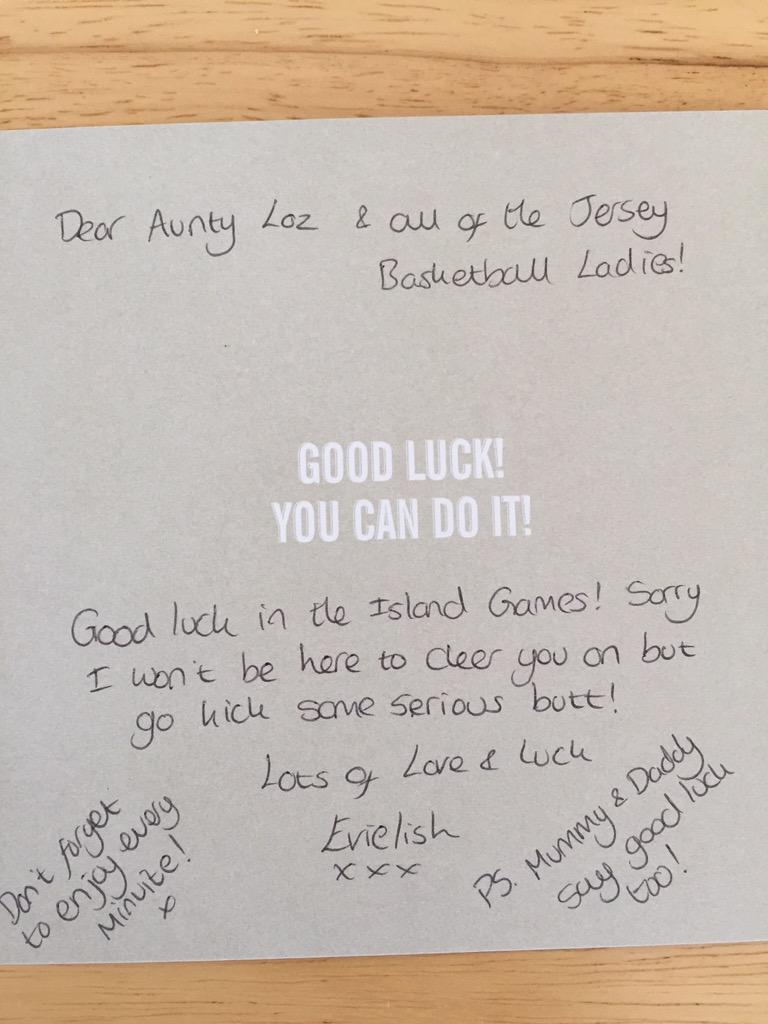 Dear Aunty Loz & all of the Jersey
Basketball Ladies!
GOOD LUCK!
YOU CAN DO IT!
Good luck in the Island Games! Sorry
I won't be here to cheer you on but
go kick some serious butt!
Lots of Love & Luck
Evielish
x x x
Don't forget
to enjoy every
Minuite!
x
PS. Mummy & Daddy
say good luck
too!